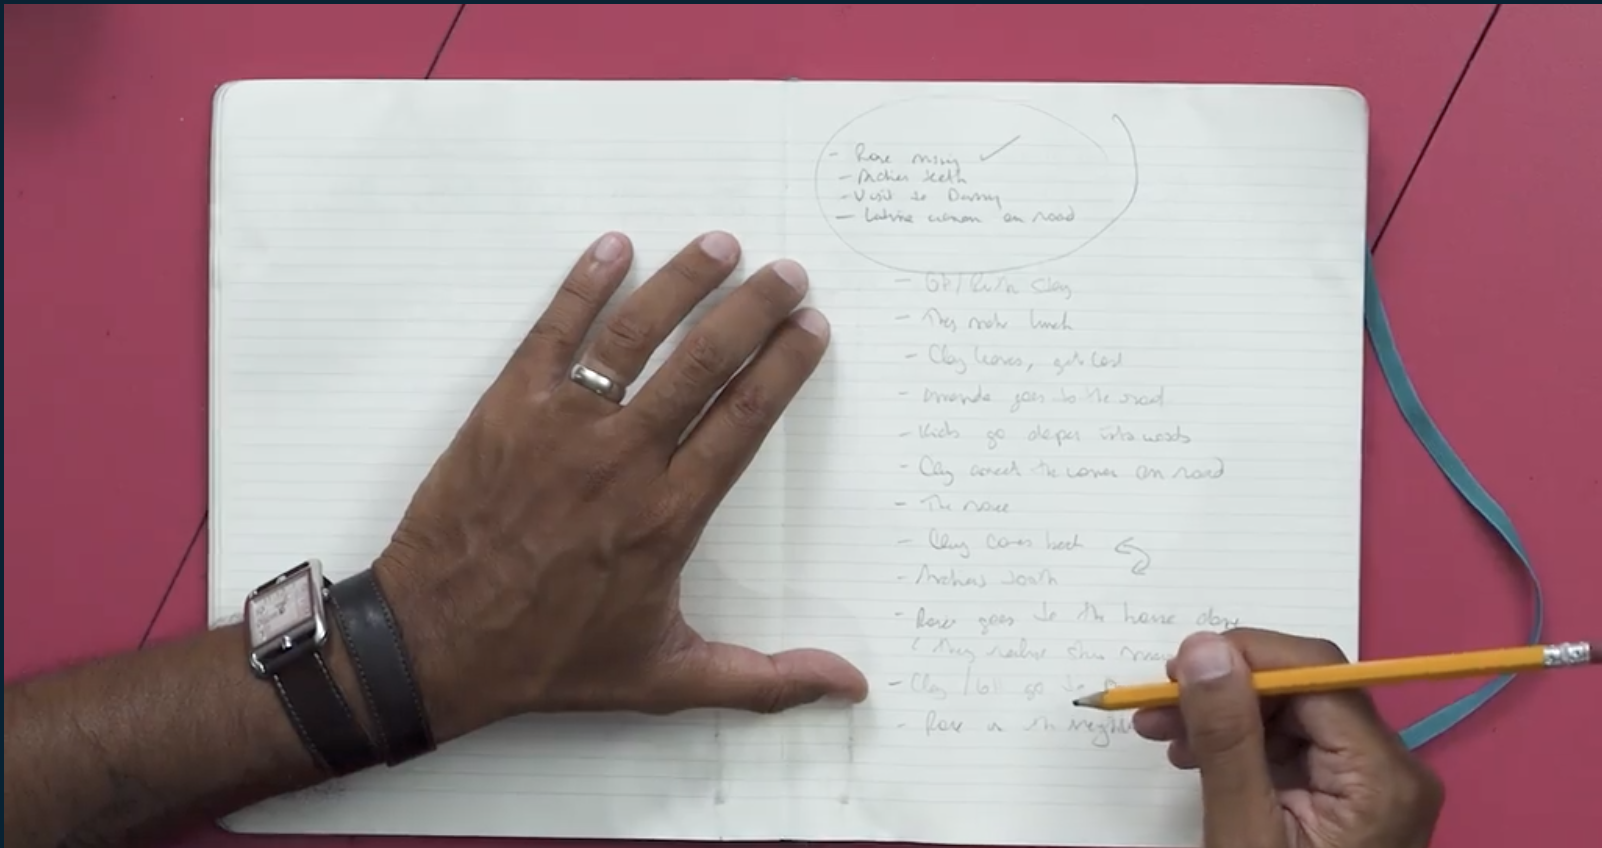 - Rose missing
- Archies teeth
- Visit to Danny
- Latina woman on road
- GH/Ruth stay
- They make lunch
- Clay leaves, gets lost
- Amanda goes to the road
- Kids go deeper into woods
- Clay the woman on road
- The noise
- Clay comes back
- Archies tooth
- Rose goes to the house
- Clay / GH go to
- Rose in the